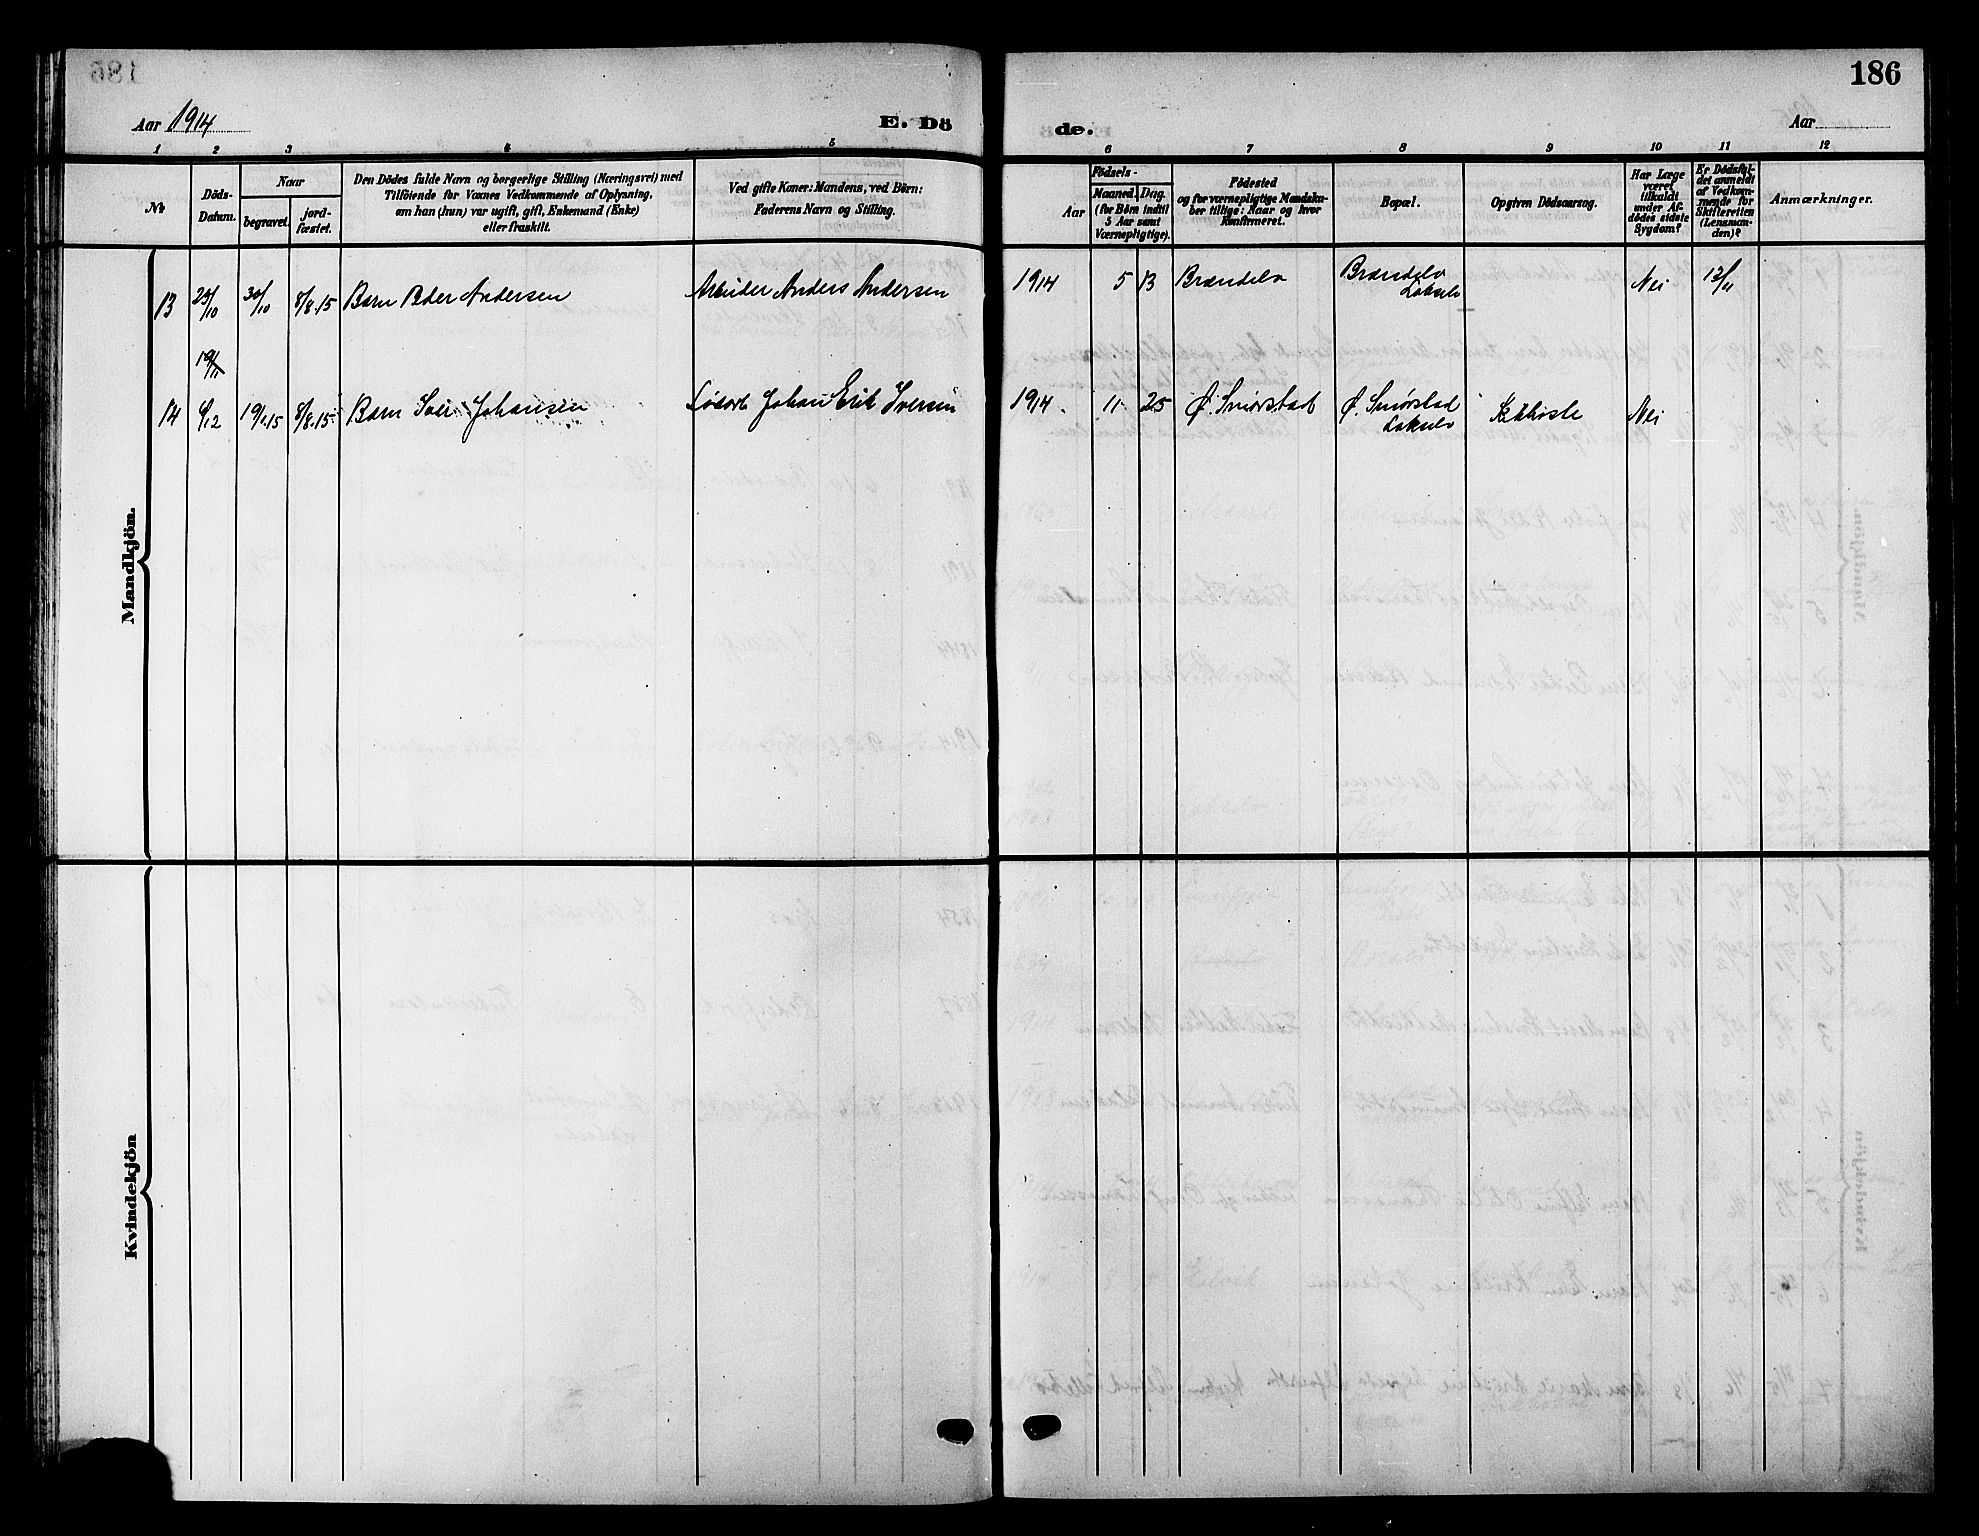 186
Aar 1914
E. Dö
de.
Aar
1 2 3 4 5
6 7 8 9 10 11 12
№
Döds-
Datum.
Naar
begravet.
jord-
fæstet.
Den Dödes fulde Navn og borgerlige Stilling (Næringsvei) med
Tilföiende for Voxnes Vedkommende af Oplysning,
om han (hun) var ugift, gift, Enkemand (Enke)
eller fraskilt.
Ved gifte Koner: Mandens, ved Börn:
Faderens Navn og Stilling.
Födsels-
Aar
Maaned. Dag.
(for Börn indtil
5 Aar samt
Værnepligtige).
Födested
og for værnepligtige Mandska-
ber tillige: Naar og hvor
Konfirmeret.
Bopæl.
Opgiven Dödsaarsag.
Har Læge
været
tilkaldt
under Af-
dödes sidste
Sygdom?
Er Dödsfal-
det anmeldt
af Vedkom-
mende for
Skifteretten
(Lensman-
den)?
Anmærkninger.
Mandkjön.
13 23/10 30/10 8/8.15 Barn Peder Andersen Arbeider Anders Andersen 1914 5 13 Brændelv Brændelv
Lakselv
Nei 12/11
19/11
14 6/12 19/1.15 8/8.15 Barn Johansen Johan Erik Iversen 1914. 11 25 Ø. Smørstad Ø. Smørstad
Lakselv
Kikhoste Nei
Kvindekjön